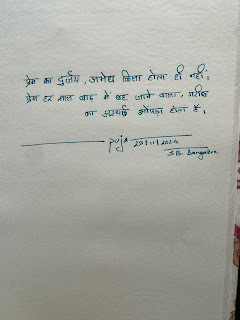 प्रेम का दुर्जय, अभेद्य किला होता ही नहीं;
प्रेम हर साल बाढ़ में बह जाने वाला, गरीब
का अस्थाई झोंपड़ा होता है।
puja 23/11/2024
SB. Bangalore